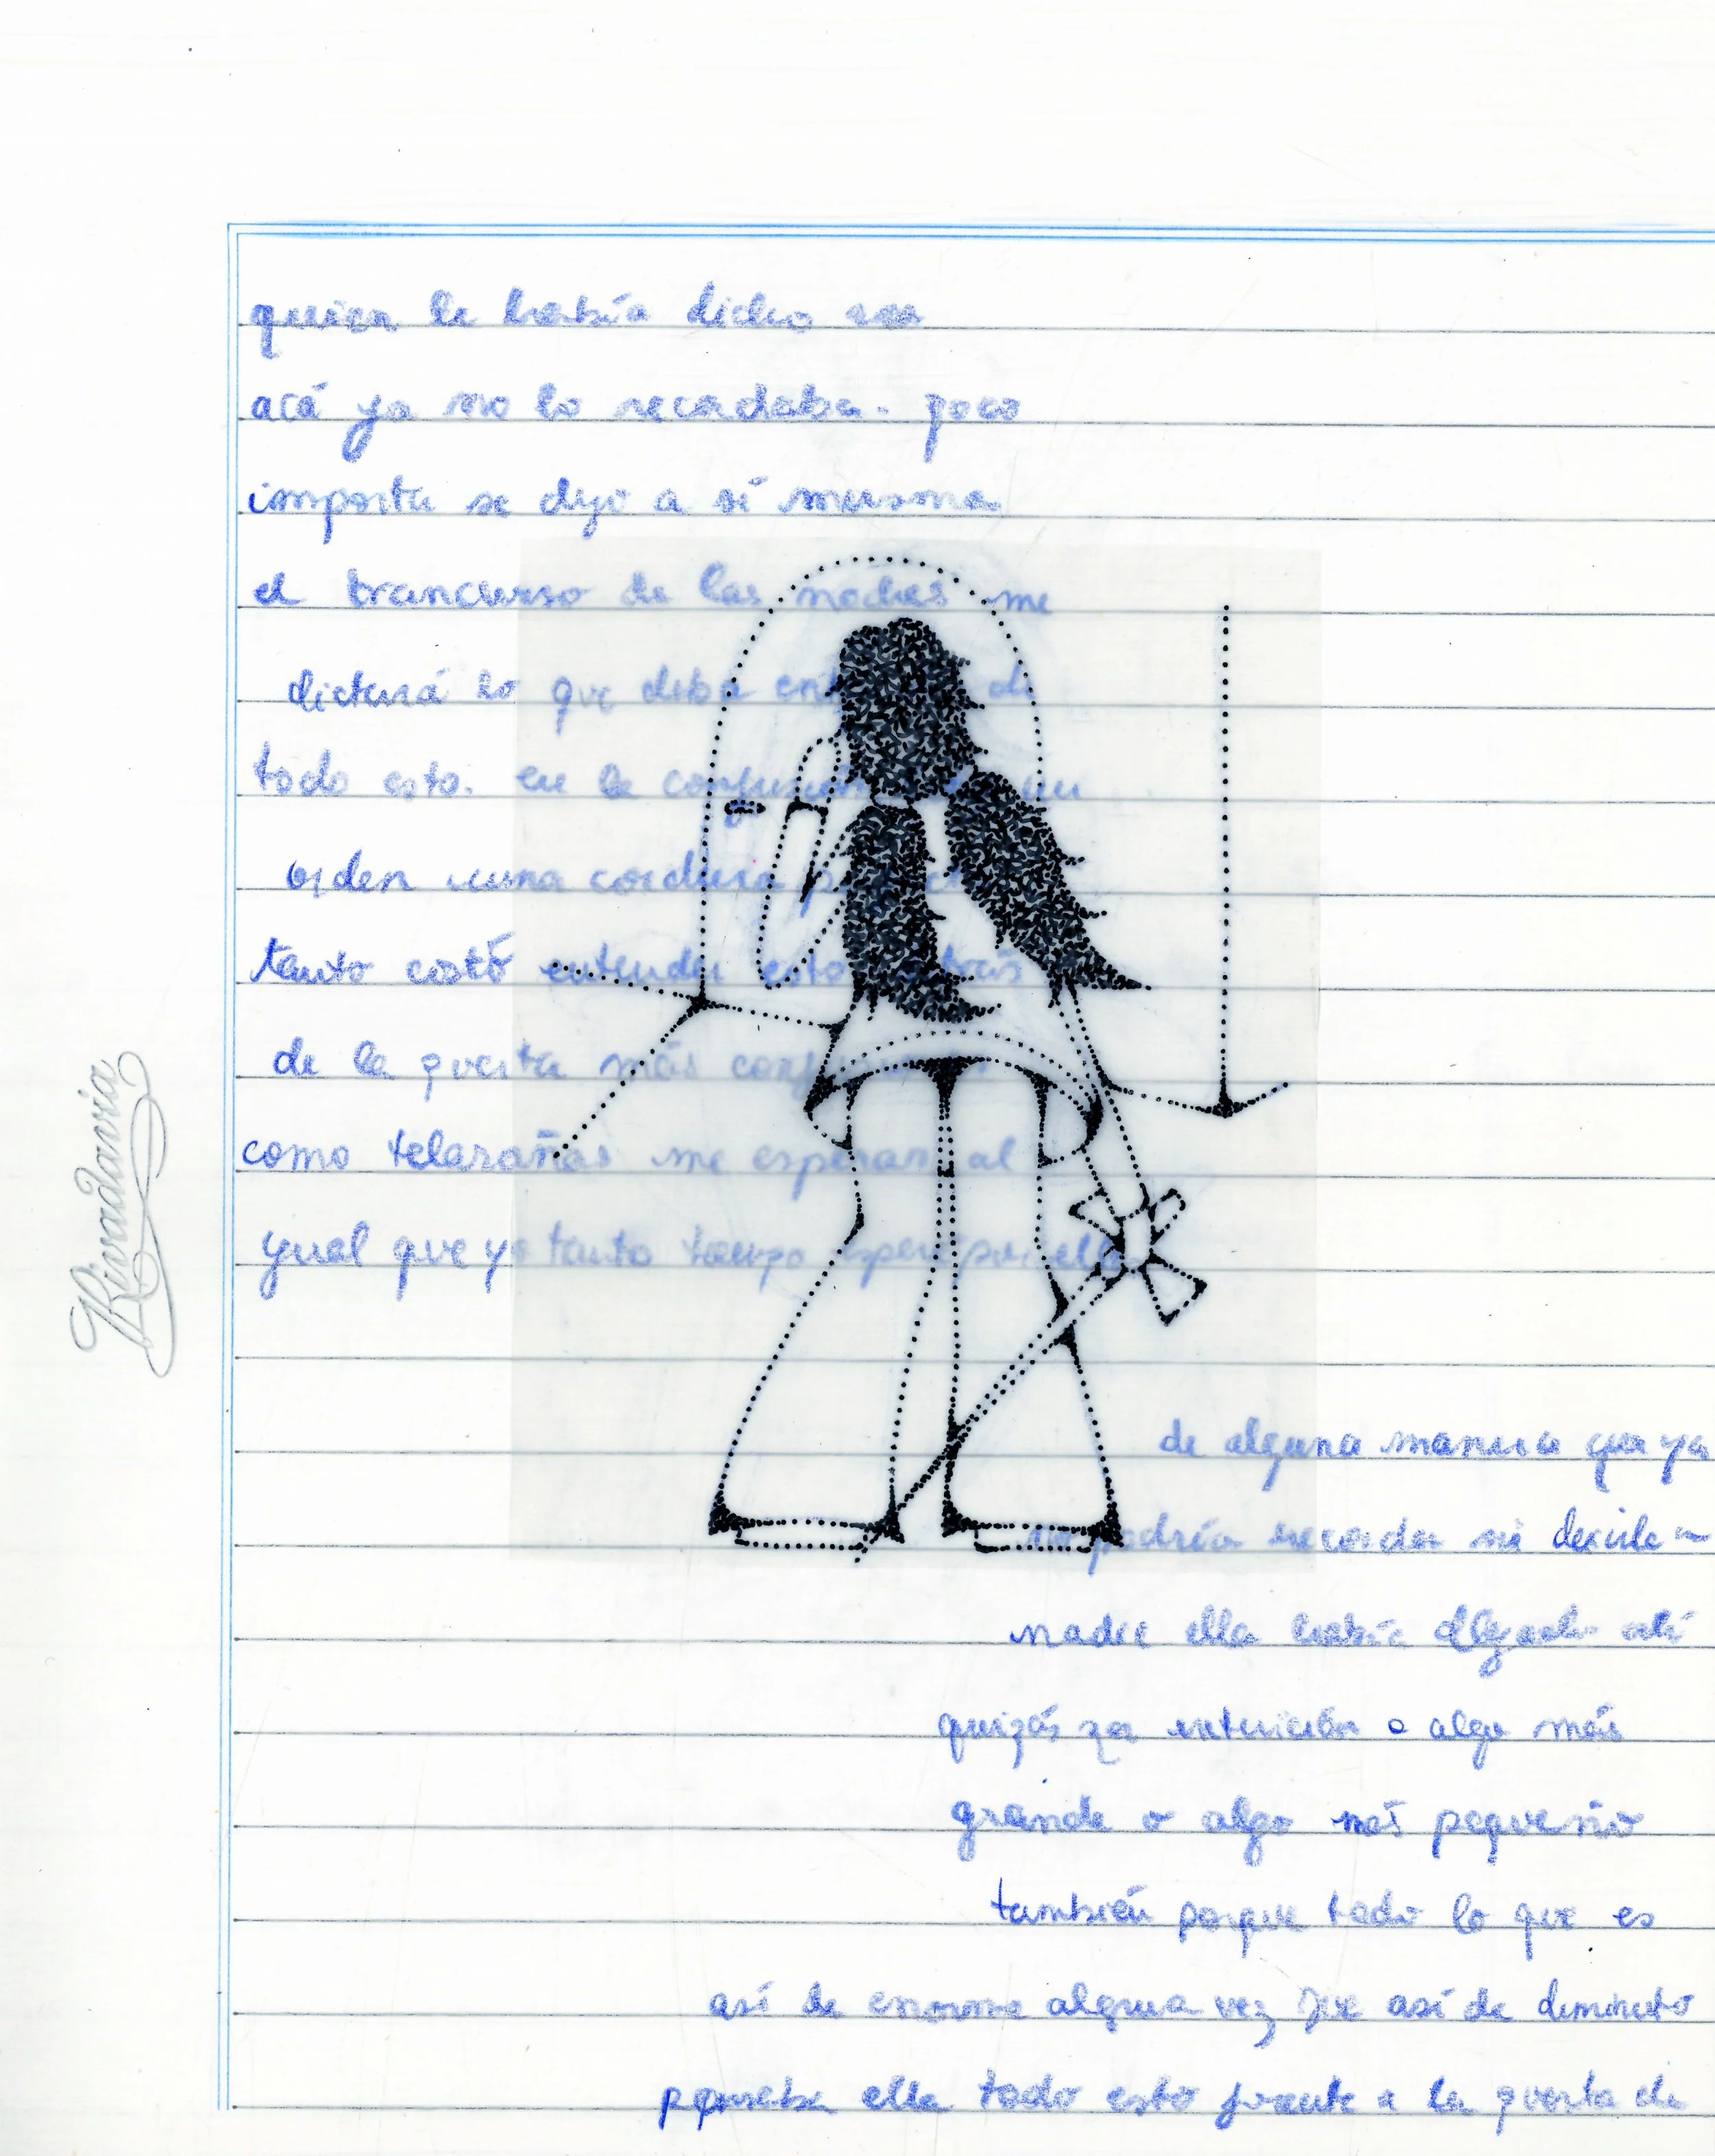 quien le había dicho
acá ya no lo recordaba. poco
importa se dijo a sí misma
el trancurso de las noches me
dictará lo que deba de
todo esto. en la
orden una cordura
tanto costó entender esto trás
de la puerta más
como telarañas me esperan al
ygual que yo tanto tiempo esperé por ello
de alguna manera que ya
no podría recordar ni decirle
nadie ella había llegado
quizás intuición o algo más
grande o algo más pequeño
también porque todo lo que es
así de enorme alguna vez fue así de diminuto
pensaba ella todo esto frente a la puerta de
Rivadavia